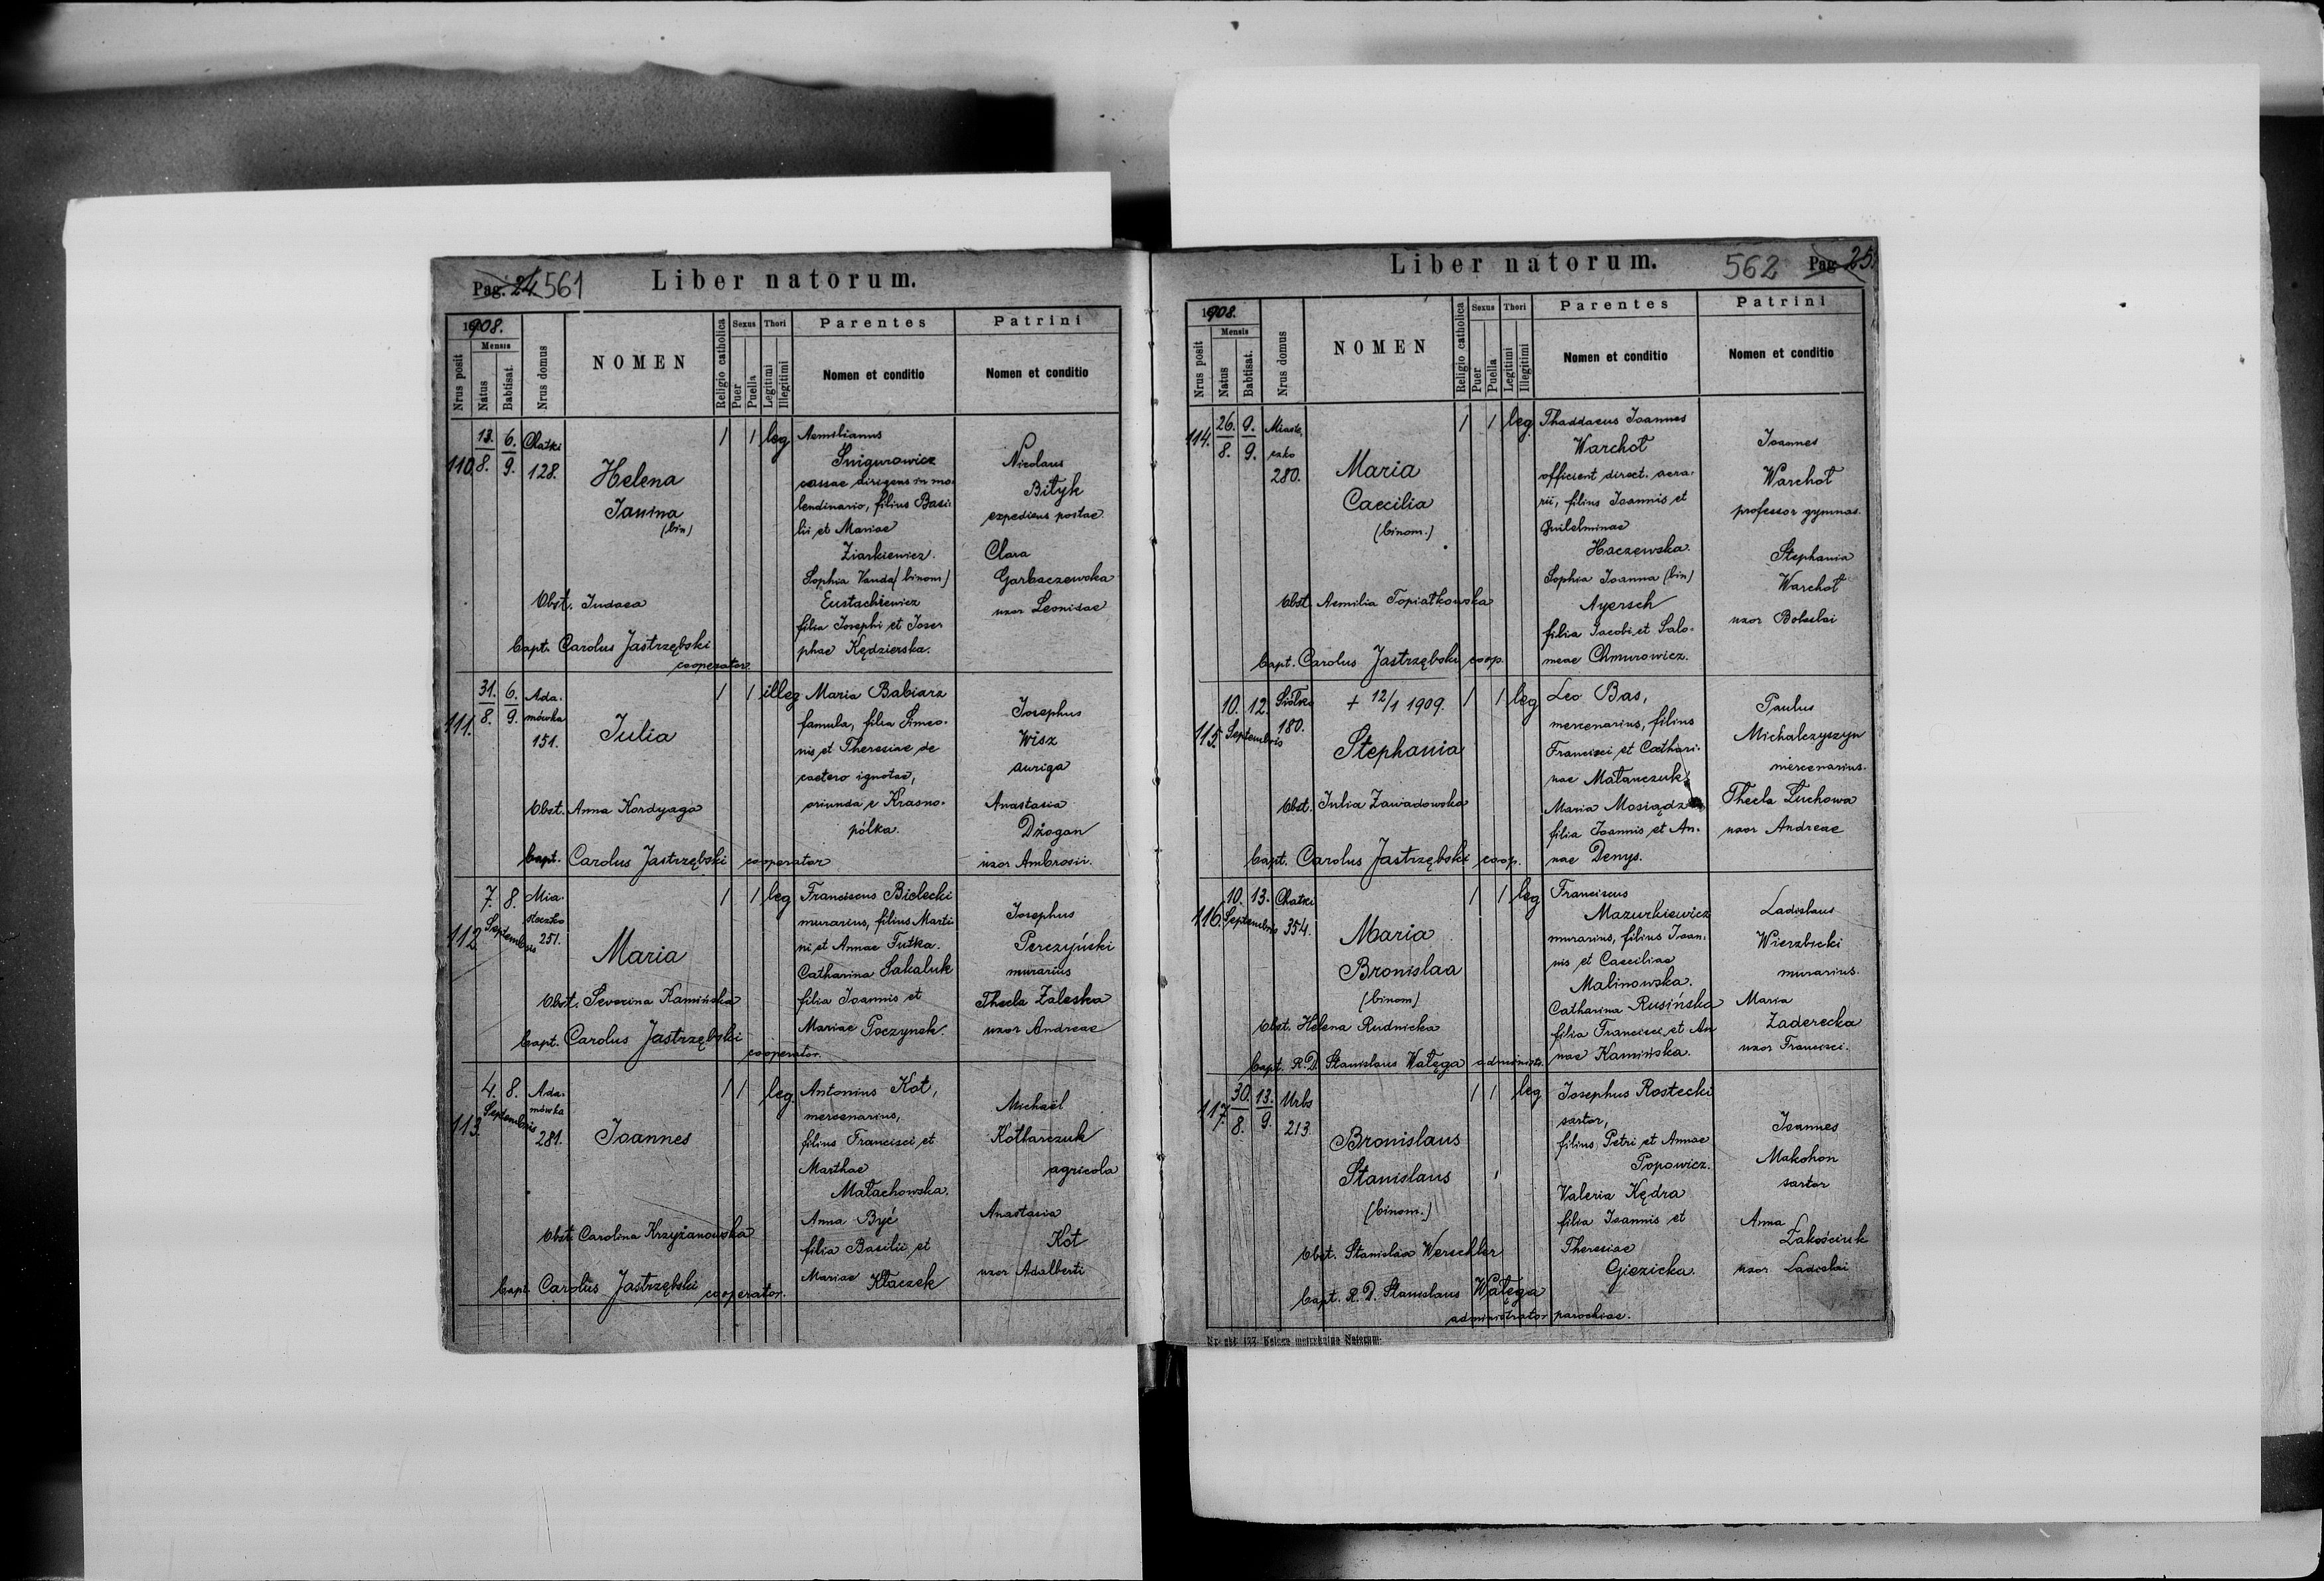 Pag. 24 561
Liber natorum.
1908.
Mensis
Nrus posit
Natus
Babtisat.
Nrus domus
NOMEN
Religio catholica
Sexus
Puer
Puella
Thori
Legitimi
Illegitimi
Parentes
Nomen et conditio
Patrini
Nomen et conditio
110.
13.
8.
6.
9.
Chatki
128.
Helena
Janina
(bin)
1 1 leg
Aemilianus
Snigurowicz
cassae dirigens in mo-
lendinario, filius Basi-
lii et Mariae
Ziarkiewicz.
Sophia Vanda (binom)
Eustachiewicz
filia Josephi et Jose-
phae Kędzierska.
Nicolaus
Bityk
expediens postae.
Clara
Garbaczewska
uxor Leonidae
Obst. Judaea
bapt. Carolus Jastrzębski
cooperator
111.
31.
8.
6.
9.
Ada-
mówka
151.
Julia
1 1 illeg
Maria Babiarz
famula, filia Simeo-
nis et Theresiae de
caetero ignotae,
oriunda e Krasno-
pólka.
Josephus
Wisz
auriga
Anastasia
Dżogan
uxor Ambrosii.
Obst. Anna Kordyaga
bapt. Carolus Jastrzębski cooperator
112
7. 8.
Septembris
Mia-
steczko
251.
Maria
1 1 leg
Franciscus Bielecki
murarius, filius Marti-
ni et Annae Futka.
Catharina Sakaluk
filia Joannis et
Mariae Poczynek.
Josephus
Perczyński
murarius
Thecla Zaleska
uxor Andreae
Obst. Severina Kamińska
bapt. Carolus Jastrzębski
cooperator.
113.
4. 8.
Septembris
Ada-
mówka
281.
Joannes
1 1 leg.
Antonius Kot,
mercenarius,
filius Francisci et
Marthae
Małachowska.
Anna Być
filia Basilii et
Mariae Kłaczek
Michaël
Kotlarczuk
agricola
Anastasia
Kot
uxor Adalberti
Obst. Carolina Krzyżanowska
bapt. Carolus Jastrzębski cooperator.
Liber natorum.
562 Pag. 25.
1908.
Mensis
Nrus posit
Natus
Babtisat.
Nrus domus
NOMEN
Religio catholica
Sexus
Puer
Puella
Thori
Legitimi
Illegitimi
Parentes
Nomen et conditio
Patrini
Nomen et conditio
114.
26.
8.
9.
9.
280.
Maria
Caecilia
(binom.)
1 1 leg.
Thaddaeus Joannes
Warchoł
officient direct. aera-
rii, filius Joannis et
Guilelminae
Haczewska.
Sophia Joanna (bin)
Ayersch
filia Jacobi et Salo-
meae Chmurowicz.
Joannes
Warchoł
professor gymnas.
Stephania
Warchoł
uxor Boleslai
Obst. Aemilia Topiatkowska
bapt. Carolus Jastrzębski coop.
115.
10. 12.
Septembris
Siółko
180.
+ 12/1 1909.
Stephania
1 1 leg
Leo Bas,
mercenarius, filius
Francisci et Cathari-
nae Małanczuk.
Maria Mosiądz
filia Joannis et An-
nae Denys.
Paulus
Michalczyszyn
mercenarius.
Thecla Łuchowa
uxor Andreae
Obst. Julia Zawadowska
bapt. Carolus Jastrzębski coop.
116.
10. 13.
Septembris
Chatki
354.
Maria
Bronislaa
(binom)
1 1 leg
Franciscus
Mazurkiewicz
murarius, filius Joan-
nis et Caeciliae
Malinowska.
Catharina Rusińska
filia Francisci et An
nae Kamińska.
Ladislaus
Wierzbicki
murarius.
Maria
Zaderecka
uxor Francisci.
Obst. Helena Rudnicka
bapt. R. D. Stanislaus Wałęga administr.
117.
30.
8.
13.
9.
Urbs
213.
Bronislaus
Stanislaus
(binom.)
1 1 leg
Josephus Rostecki
sartor,
filius Petri et Annae
Popowicz.
Valeria Kędra
filia Joannis et
Theresiae
Giezicka.
Joannes
Makohon
sartor
Anna
Zakościuk
uxor Ladislai
Obst. Stanislaa Werschler
bapt. R. D. Stanislaus Wałęga
administrator parochiae.